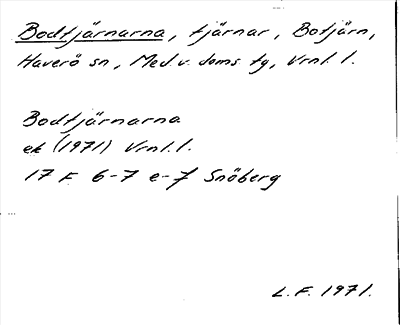 Bodtjärnarna, tjärnar, Botjärn,
Haverö sn, Med.v. doms tg, Vrnl. l.
Bodtjärnarna
ek (1971) Vrnl. l.
17 F 6-7 e-f Snöberg
L.F. 1971.